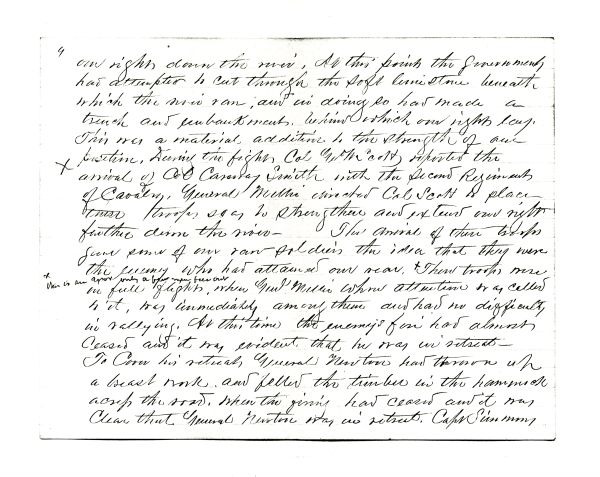 our right down the river. At this point the Government
had attempted to cut through the soft limestone beneath
which the river ran, and in doing so had made a
trench and embankment, behind which our right lay.
This was a material addition to the strength of our
position. During the fight Col Scott reported the
x arrival of Col Caraway Smith with the Second Regiment
of Cavalry. General Miller directed Col Scott to place
these troops so as to strengthen and extend our right
further down the river— The arrival of these troops
gave some of our raw soldiers the idea that they were
the enemy who had attained our rear. These troops were
x This is an error only a few
in full flight, when Genl Miller whose attention was called
to it, was immediately among them and had no difficulty
in rallying. At this time the enemy's fire had almost
ceased and it was evident that he was in retreat—
To Cover his retreat General Newton had thrown up
a breast work, and felled the timber in the hammock
across the road. When the firing had ceased and it was
Clear that General Newton was in retreat. Capt Simmons